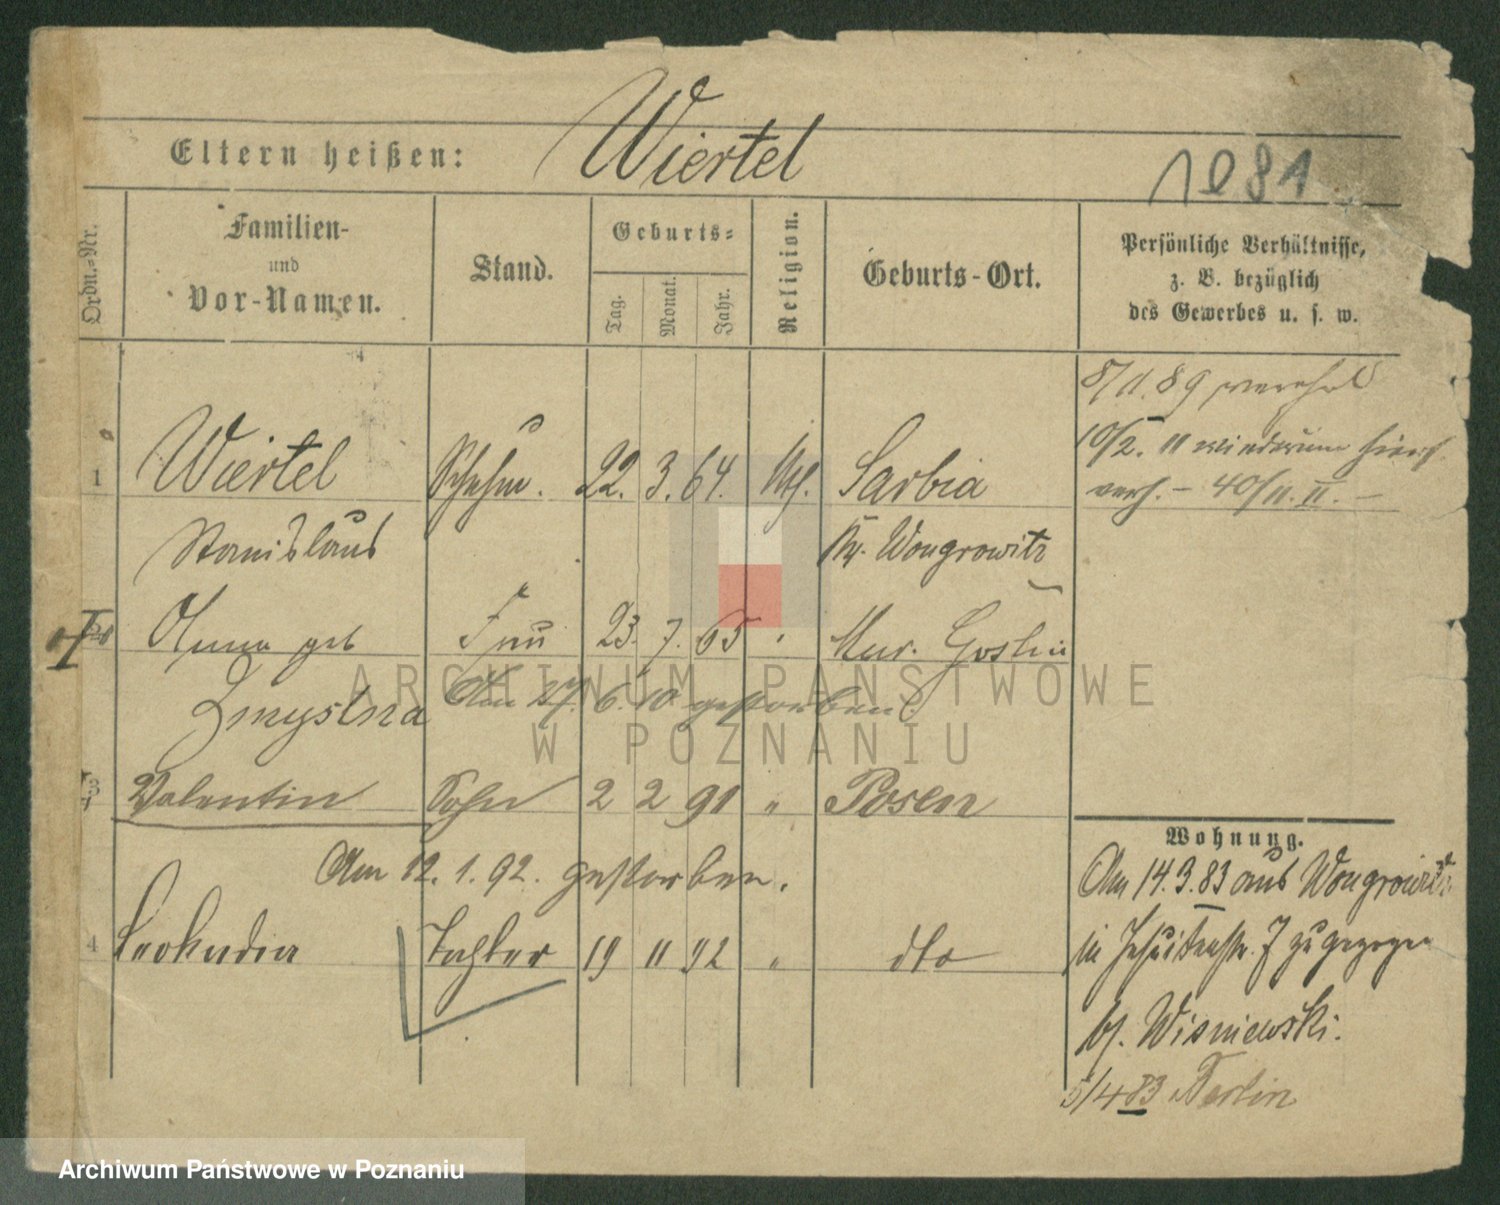 Wiertel
Eltern heißen:
1081
Ordn.=Nr.
Familien-
und
Vor-Namen.
Stand.
Geburts=
Tag.
Monat.
Jahr.
Religion.
Geburts-Ort.
Persönliche Verhältnisse,
z. B. bezüglich
des Gewerbes u. s. w.
8/11. 89 vereh.
10/2. 11 wiederum
verh. – 40/11. II. –
1 Wiertel 22. 3. 64. Sarbia
Stanislaus Kr. Wongrowitz
Anna geb Frau 23. 7. 65 " Mur. Goslin
Zmyslna Am 27. 6. 10 gestorben.
3 Valentin Sohn 2 2 91 " Posen
Am 12. 1. 92. gestorben.
4 Leokadia Tochter 19 11 92 " dto
Wohnung.
Am 14.3.83 aus Wongrowitz
in Jesuitenstr. 7 zugezogen
bj. Wisniewski.
5/4 83 Berlin
ARCHIWUM PAŃSTWOWE
W POZNANIU
Archiwum Państwowe w Poznaniu